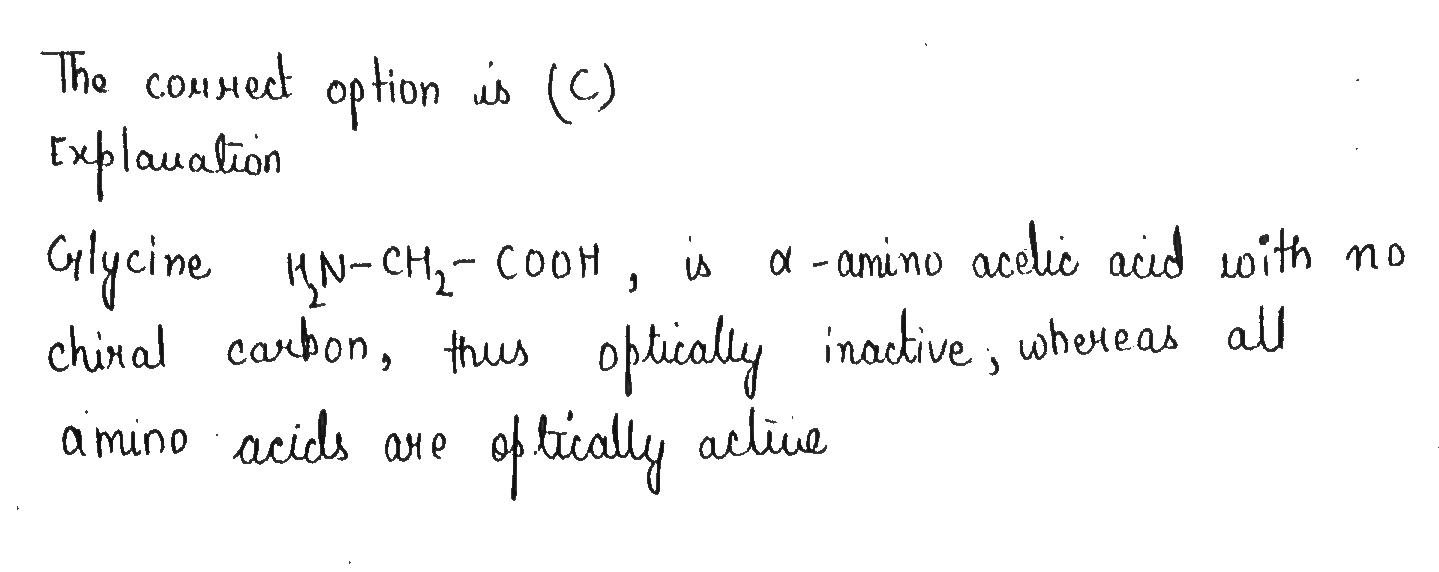 The correct option is (C)
Explanation
Glycine H₂N-CH₂-COOH, is α-amino acetic acid with no
chiral carbon, thus optically inactive, whereas all
amino acids are optically active